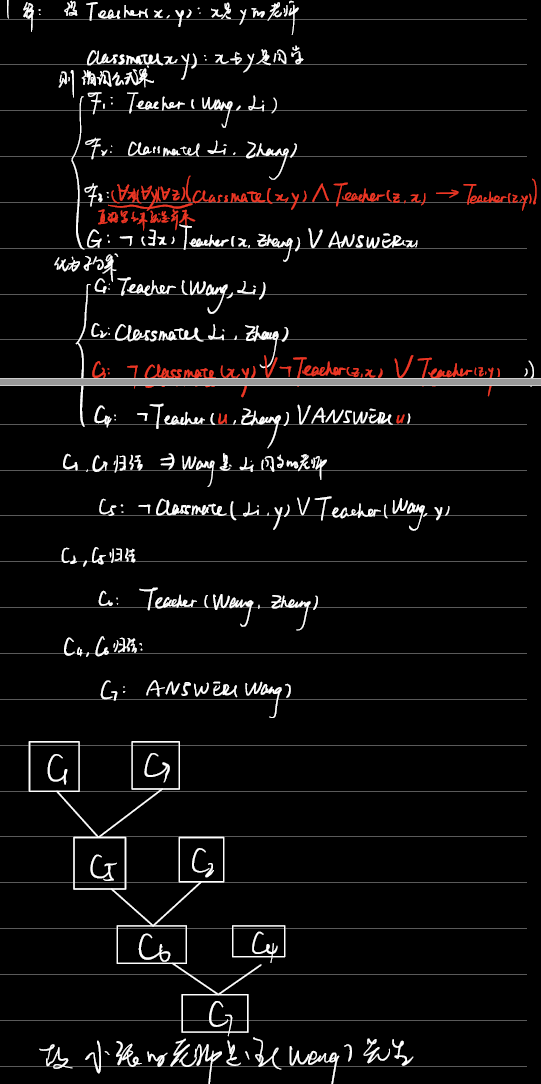 解: 设 Teacher(x,y): x是y的老师
Classmate(x,y): x与y是同学
则 谓词公式集
F₁: Teacher(Wang, Li)
F₂: Classmate(Li, Zhang)
F₃: (∀x)(∀y)(∀z)(Classmate(x,y) ∧ Teacher(z,x) → Teacher(z,y))
G: ¬(∃x) Teacher(x, Zhang) ∨ ANSWER(x)
化为子句集
C₁: Teacher(Wang, Li)
C₂: Classmate(Li, Zhang)
C₃: ¬Classmate(x,y) ∨ ¬Teacher(z,x) ∨ Teacher(z,y)
C₄: ¬Teacher(u, Zhang) ∨ ANSWER(u)
C₁, C₃ 归结 ⇒ Wang是 Li 同学的老师
C₅: ¬Classmate(Li, y) ∨ Teacher(Wang, y)
C₂, C₅归结
C₆: Teacher(Wang, Zhang)
C₄, C₆归结:
C₇: ANSWER(Wang)
C₁ C₃
C₅ C₂
C₆ C₄
C₇
故 小张的老师是王(Wang)先生